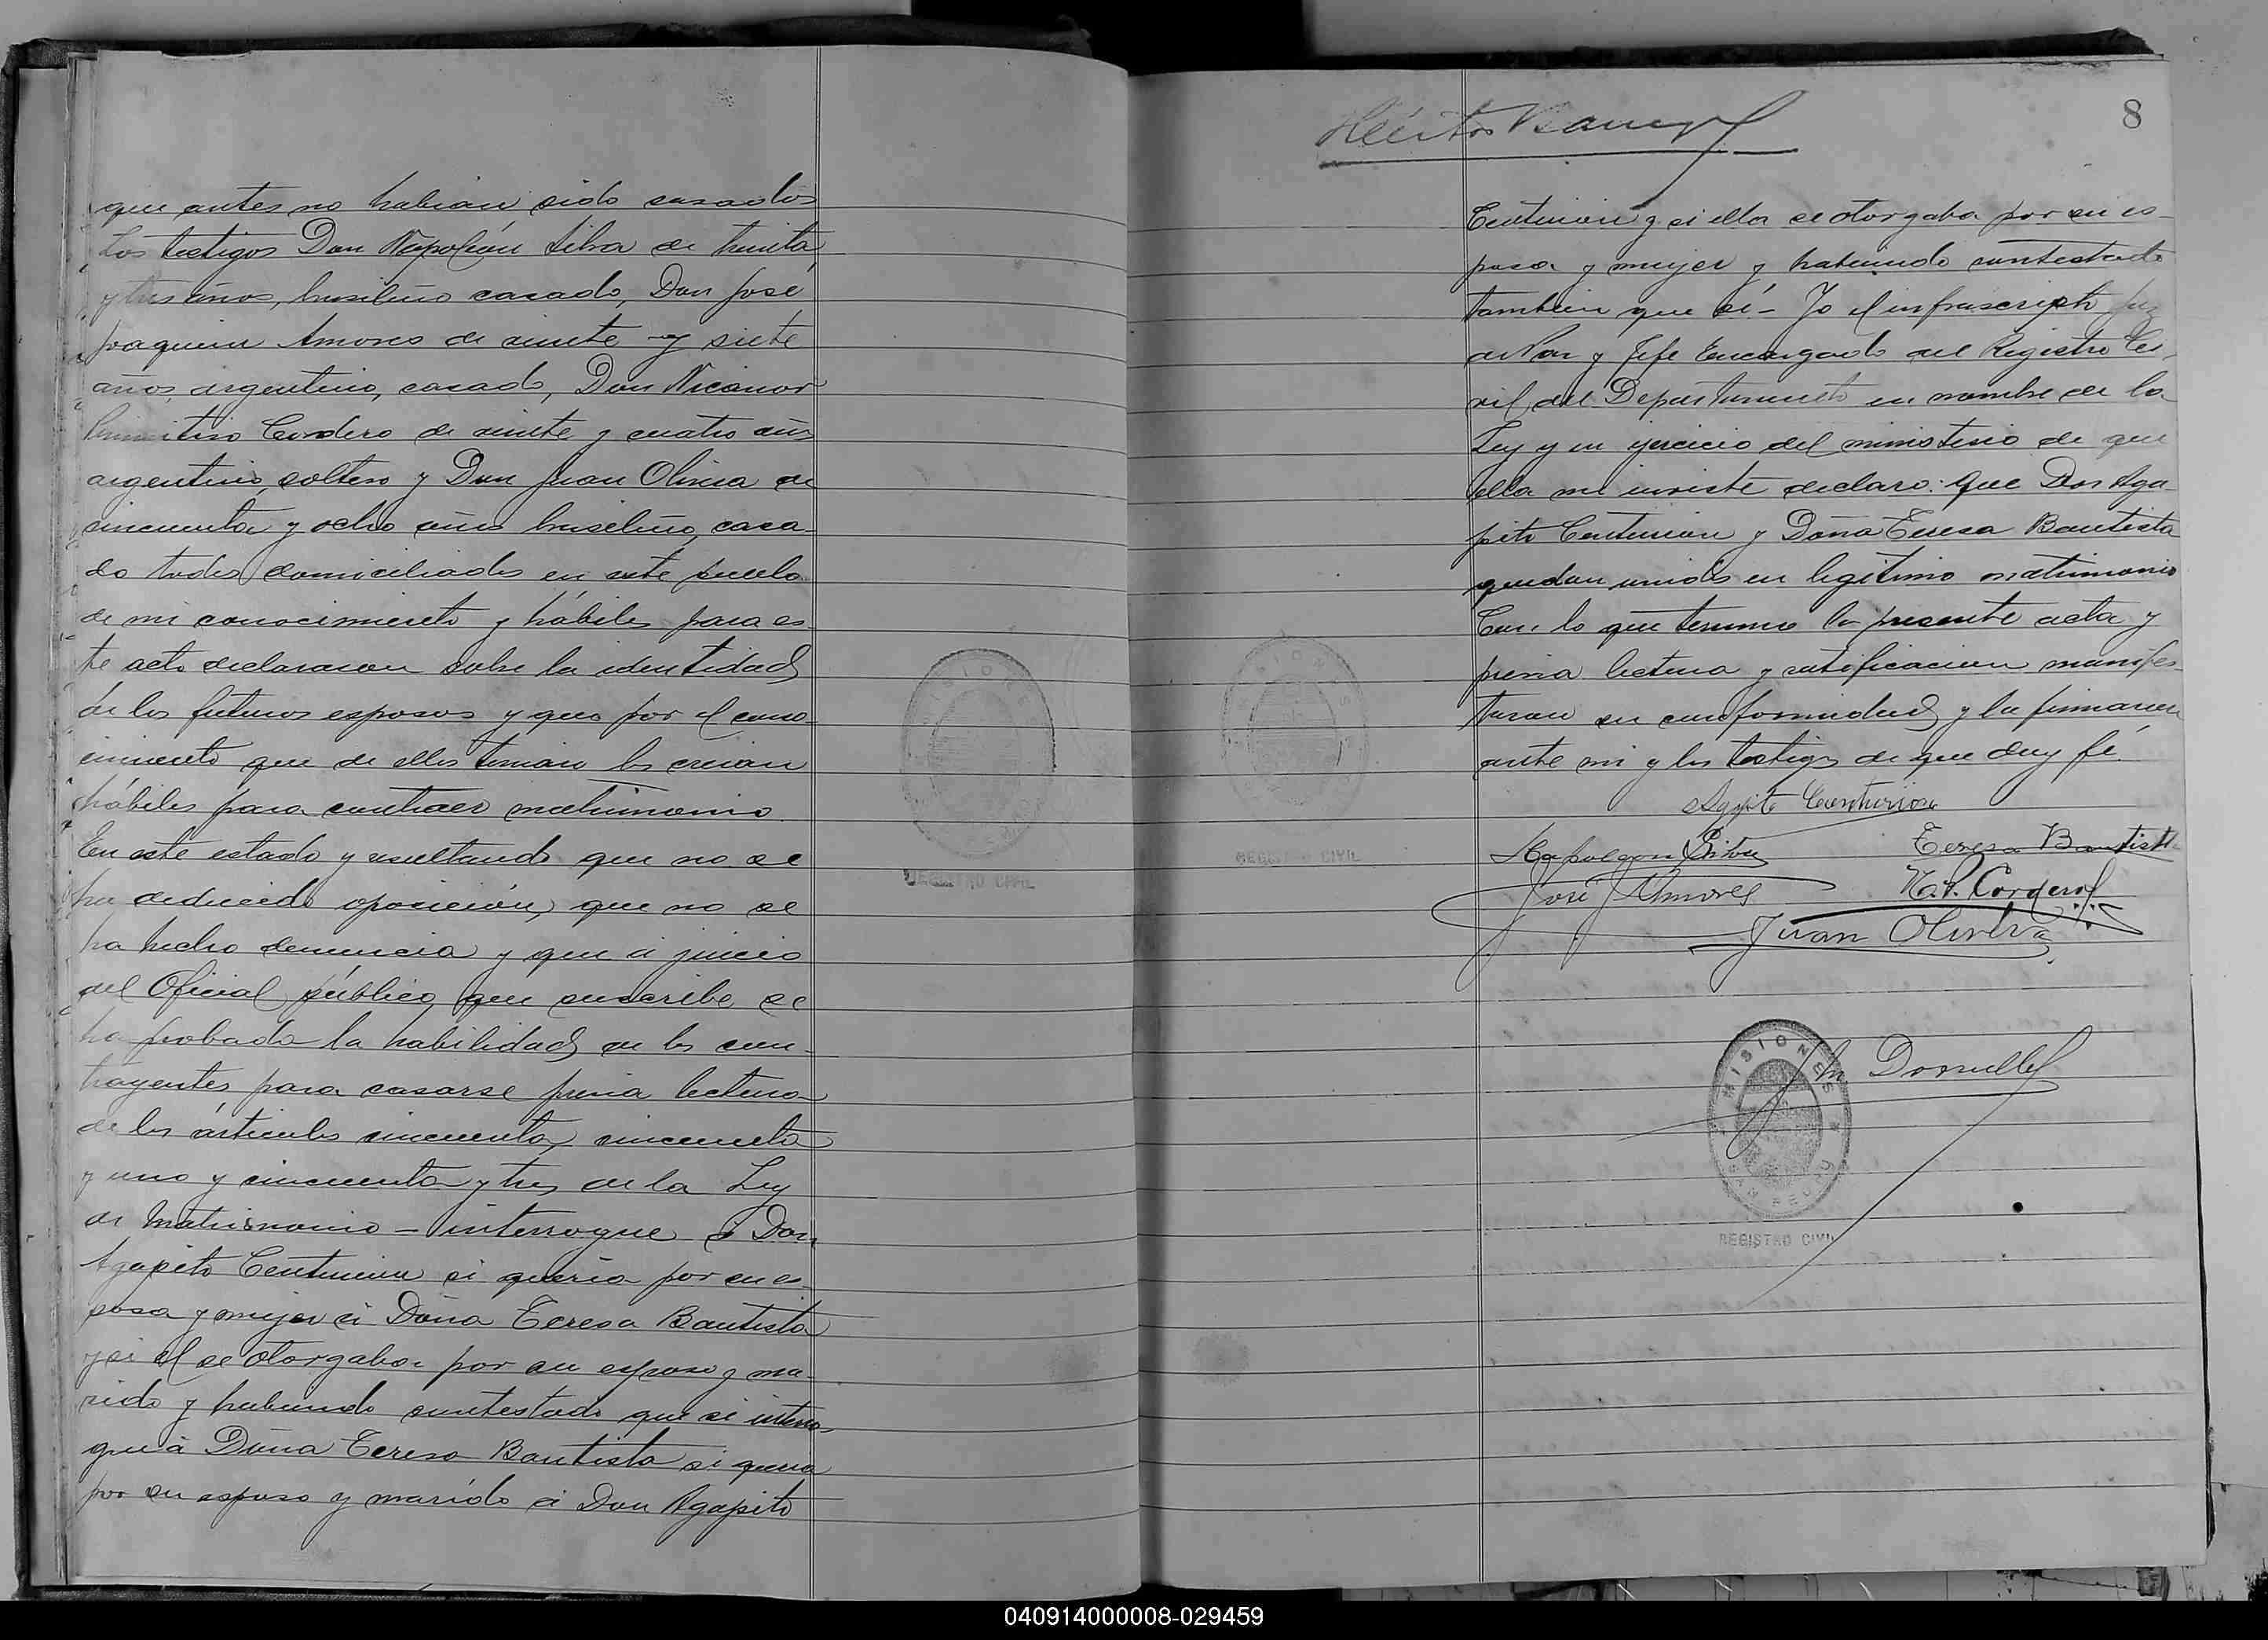 que antes no habian sido casados
Los testigos Don Napoleón Silva de treinta
y tres años, brasilero casado, Don José
Joaquin Amores de veinte y siete
años, argentino, casado, Don Nicanor
Primitivo Cordero de veinte y cuatro años
argentino, soltero y Don Juan Olivera de
cincuenta y ocho años brasilero, casa-
do todos domiciliados en este pueblo
de mi conocimiento y hábiles para es-
te acto declararon sobre la identidad
de los futuros esposos y que por el cono-
cimiento que de ellos tenian los creian
hábiles para contraer matrimonio.
En este estado y resultando que no se
ha deducido oposición, que no se
ha hecho denuncia y que á juicio
del Oficial público que suscribe se
ha probado la habilidad de los con-
trayentes para casarse previa lectura
de los artículos cincuenta, cincuenta
y uno y cincuenta y tres de la Ley
de Matrimonio – interrogue á Don
Agapito Centurion si queria por su es-
posa y mujer á Doña Teresa Bautista
y si el se otorgaba por su esposo y ma-
rido y habiendo contestado que si interro-
gue á Doña Teresa Bautista si queria
por su esposo y marido á Don Agapito
8
Centurion y si ella se otorgaba por su es-
posa y mujer y habiendo contestado
tambien que sí – Yo el infrascripto Juez
de Paz y Jefe Encargado del Registro Ci-
vil del Departamento en nombre de la
Ley y en ejercicio del ministerio de que
ella me inviste declaro: que Don Aga-
pito Centurion y Doña Teresa Bautista
quedan unidos en legítimo matrimonio
Con lo que termino la presente acta y
previa lectura y ratificacion manifes-
taron su conformidad y la firmaron
ante mi y los testigos de que doy fé.
Agapito Centurion
Napoleon Silva Teresa Bautista
José J Amores N. P. Cordero
Juan Olivera
MISIONES
REGISTRO CIVIL
MISIONES
REGISTRO CIVIL
MISIONES
SAN PEDRO
REGISTRO CIVIL
040914000008-029459